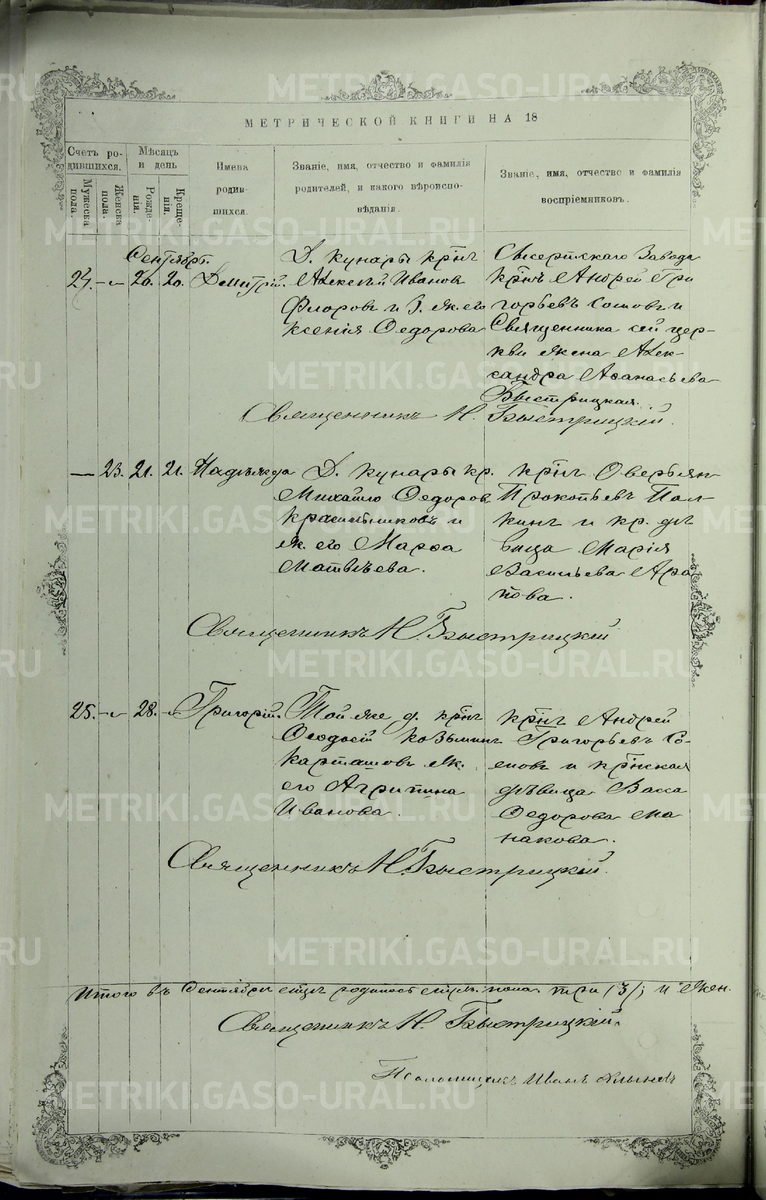 МЕТРИЧЕСКОЙ КНИГИ НА 18
Счетъ родившихся.
Мужеска пола.
Женска пола.
Мѣсяцъ и день
Рожденія.
Крещенія.
Имена родившихся.
Званіе, имя, отчество и фамилія родителей, и какого вѣроисповѣданія.
Званіе, имя, отчество и фамилія воспріемниковъ.
Сентябрь
24. 20. 20. Димитрій.
Д. Кунары крнъ
Алексѣй Ивановъ
Флоровъ и З. ж. его
Ксенія Ѳедорова
Сысертскаго Завода
крнъ Андрей Гри
горьевъ и
Священника сей цер-
кви жена Алек-
сандра Аѳанасьева
Быстрицкая.
Священникъ Н. Быстрицкій.
— 23. 21. 21. Надежда
Д. Кунары кр.
Михайло Ѳедоров
Крашенинниковъ и
ж. его Марѳа
Матвѣева.
крнъ Оверьян
Прокопьевъ Пал-
кинъ и кр. дѣ
вица Марія
Васильева Ара
пова.
Священникъ Н Быстрицкій
25. 28. Григорій.
Той же д. крнъ
Ѳеодосій Козьминъ
Карташовъ ж.
его Агрипина
Иванова.
крнъ Андрей
Григорьевъ
и крнская
дѣвица Васса
Ѳедорова Ма
накова.
Священникъ Н. Быстрицкій.
Итого въ Сентябрѣ родилось пола три /3/, и жен.
Священникъ Н. Быстрицкій.
Псаломщикъ Иванъ
METRIKI.GASO-URAL.RU